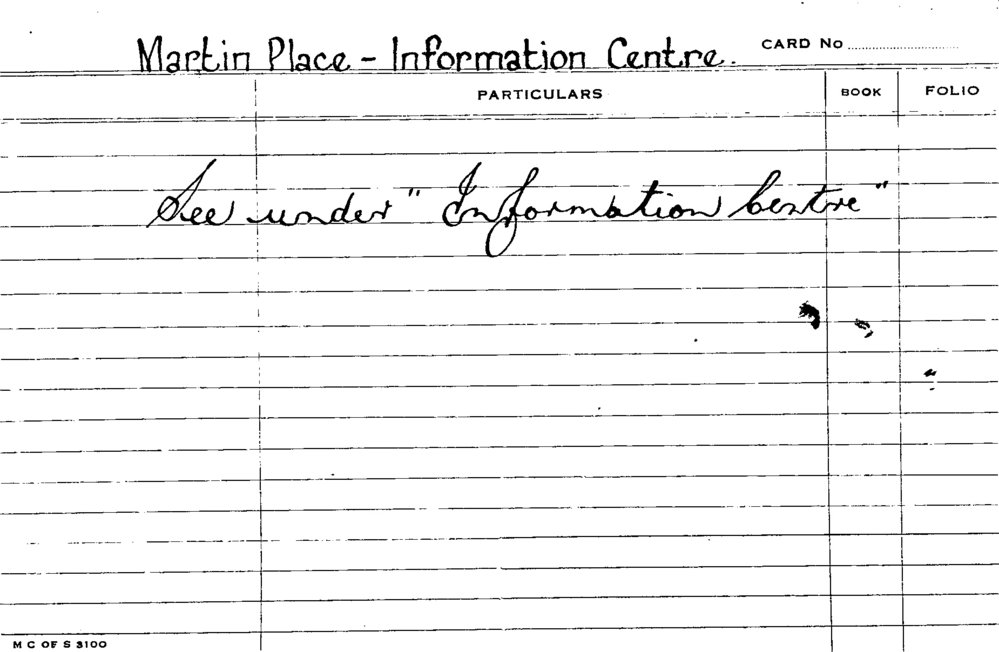 Martin Place - Information Centre. CARD No
PARTICULARS BOOK FOLIO
See under "Information Centre"
M C OF S 3100